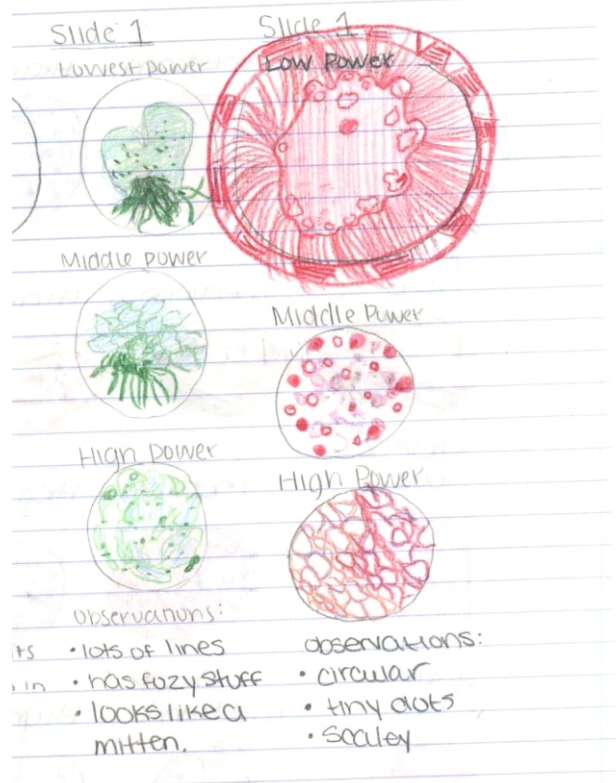 Slide 1
Lowest power
Middle power
High power
Observations:
• lots of lines
• has fozy stuff
• looks like a
mitten.
Slide 1
Low Power
Middle Power
High Power
observations:
• circular
• tiny dots
• Scaley
ts
in